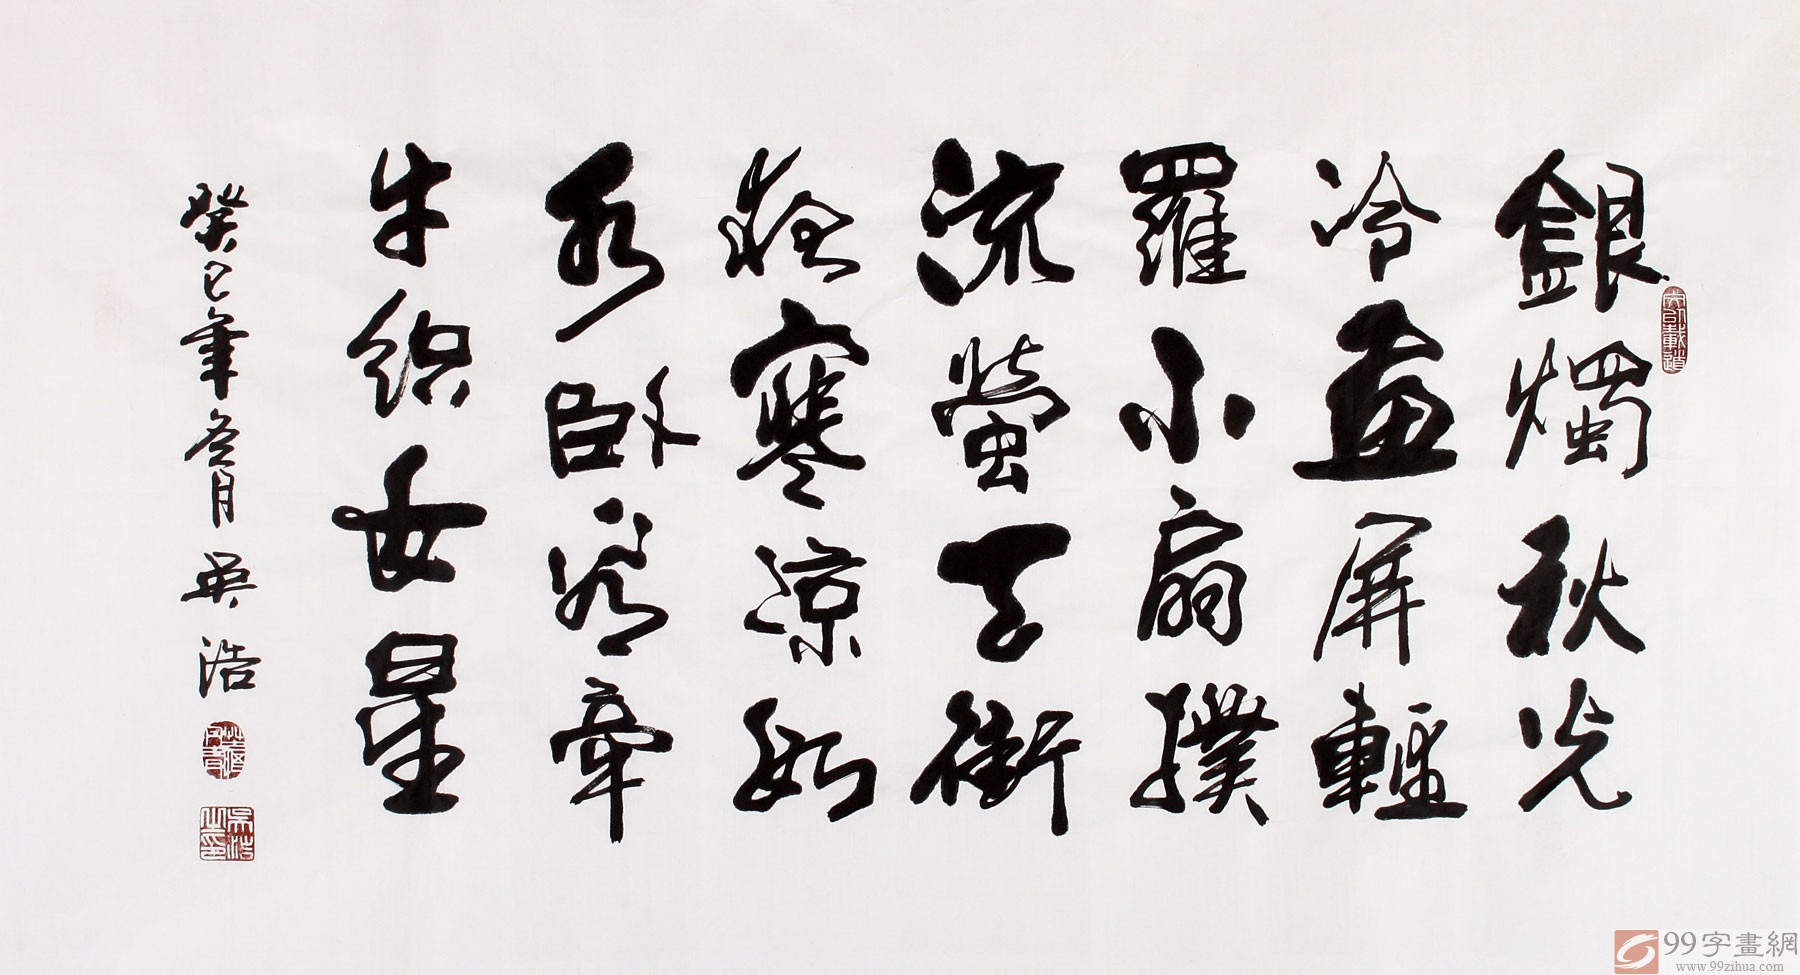 銀燭秋光
冷畫屏輕
羅小扇撲
流螢天街
夜寒涼如
水臥看牽
牛织女星
癸巳年冬月 吴浩
吴浩之印
99字畫網
www.99zihua.com